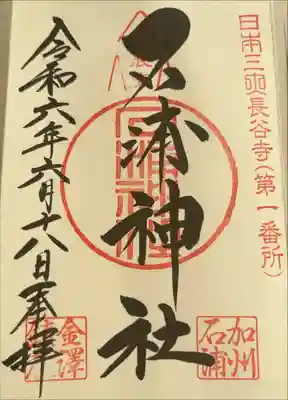 日本三所長谷寺(第一番所)
石浦神社
加州
石浦
令和六年六月十八日奉拝
金澤